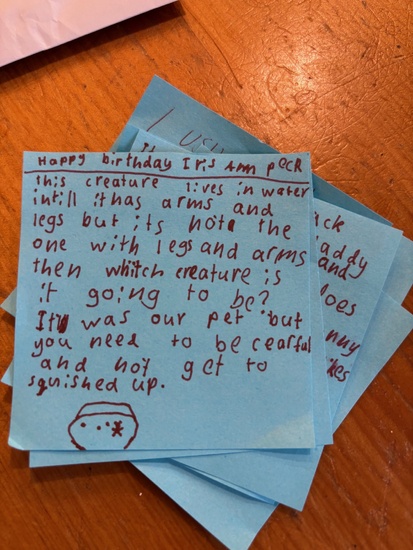 Happy birthday Iris Ann pecr
this creature lives in water
intill it has arms and
legs but its note the
one with legs and arms
then whitch creature is
it going to be?
It was our pet but
you need to be cearful
and not get to
squished up.
I
ack
addy
and
loes
nny
kes